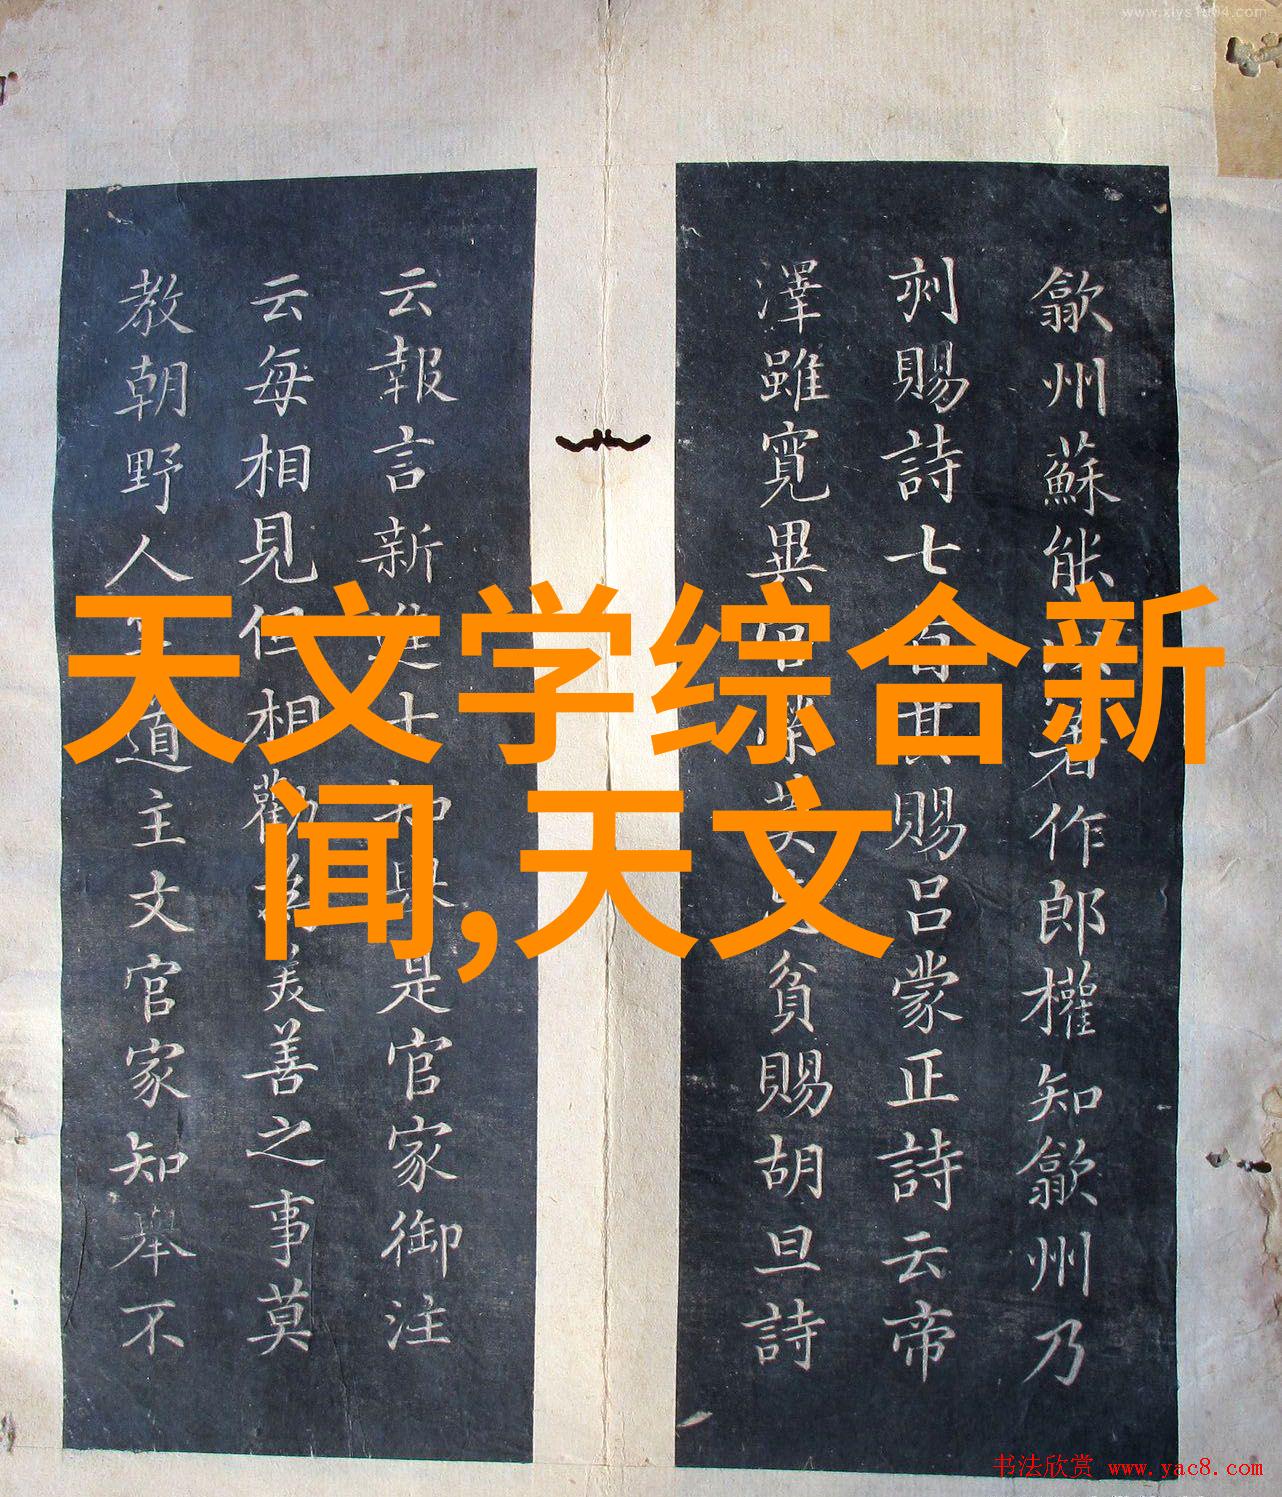 www.xlys1904.com
天文学综合新
闻,天文
歙州蘇能著作郎權知歙州乃
刺賜詩七其賜呂蒙正詩云帝
澤雖寬異英貧賜胡旦詩
云報言新進士知舉是官家御注
云每相見但相勸為美善之事莫
教朝野人道主文官家知舉不
书法欣赏 www.yac8.com